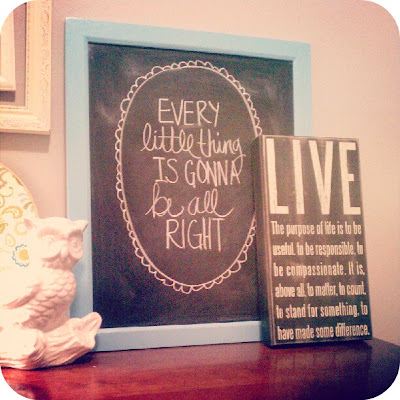 EVERY
little thing
IS GONNA
be all
RIGHT
LIVE
The purpose of life is to be
useful, to be responsible, to
be compassionate. It is,
above all, to matter, to count,
to stand for something, to
have made some difference.